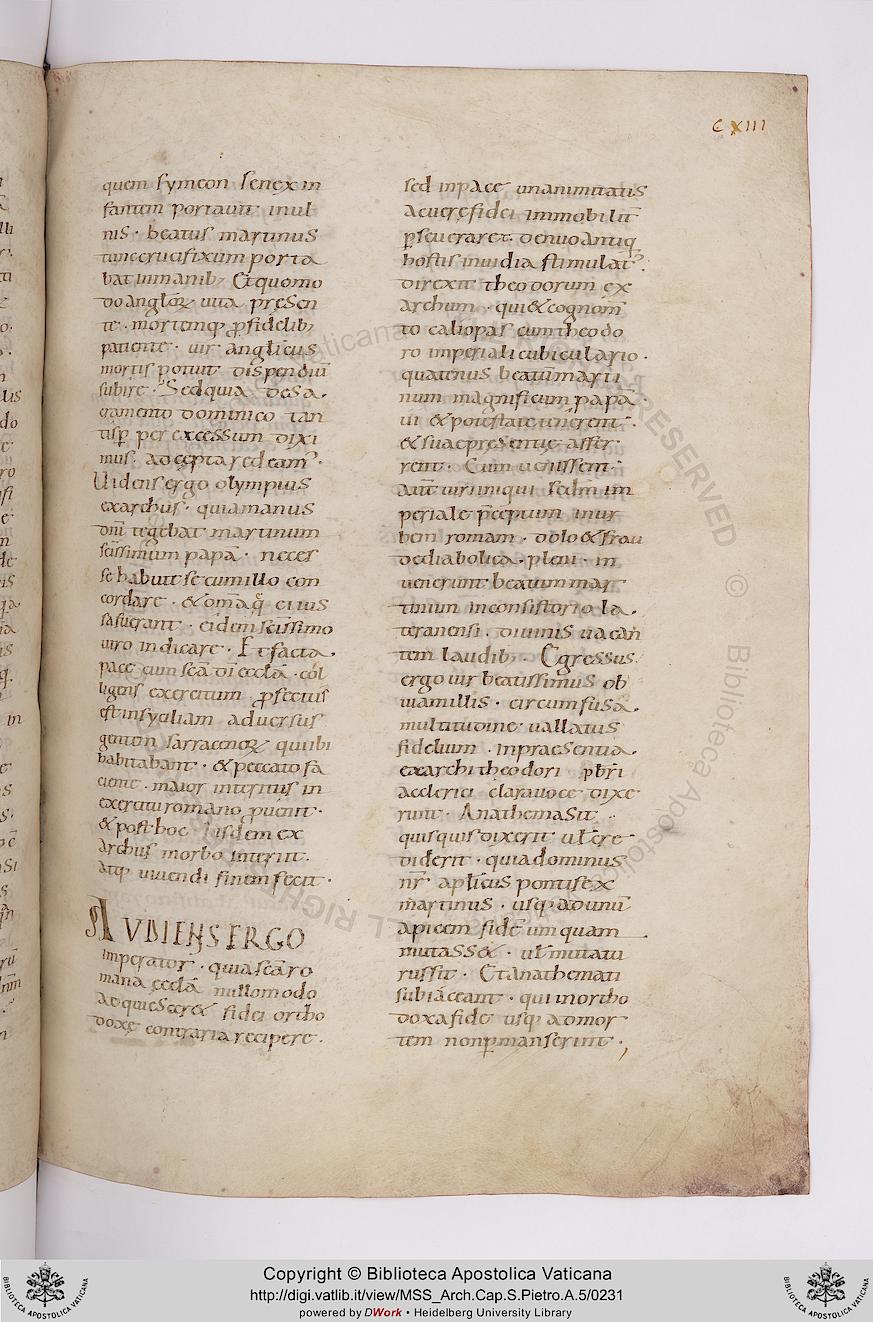 CXIII
quem symeon senex in
fantem portavit in ul
nis · beatus martinus
tunc crucifixum porta
bat in manib; Et quomo
do anglor̄ vita p̱resen
te · mortemq; ꝓ fidelib;
patiente · vir anglicus
mortis potuit dispendiū
subire · Sed quia de sa
cramento dominico tan
tisp̱ per excessum dixi
mus · ad cępta redeam᾽ ·
Uidens ergo olympius
exarchus · quia manus
dn̄i tegebat martinum
sc̄issimum papā · neces
se habuit se cum illo con
cordare · & om̄ia q̨ ei ius
sa fuerant · eidem sc̄issimo
viro indicare · Et facta
pace cum sc̄a dī eccl̄a · col
ligens exercitum ꝓfectus
est in syciliam adversus
gentem sarracenor̄ qui ibi
habitabant · & peccato fa
ciente · maior interitus in
exercitu romano ꝓvenit ·
& post hoc isdem ex
archus morbo interiit ·
atq; vivendi finem fecit ·
AUDIENS ERGO
imperator · quia sc̄a ro
mana eccl̄a nullo modo
acquiesceret fidei ortho
doxę contraria recipere ·
sed in pace unanimitatis
ac verę fidei immobilit̄
ꝑseveraret · denuo antiq̨
hostis invidia stimulat᾽ ·
direxit theodorum ex
archum · qui & cognom̄
to caliopas cum theodo
ro imperiali cubiculario ·
quatenus beatū marti
num magnificum papā ·
vi & potestate tenerent ·
& suae pręsentię affer
rent · Cum venissent
aut̄ viri iniqui scd̄m im
periale p̄ceptum in ur
bem romam · dolo & frau
de diabolica · pleni · in
venerunt beatum mar
tinum in consistorio la
teranensi · divinis vacan̄
tem laudib; · Egressus
ergo vir beatissimus ob
viam illis · circumfusa
multitudine vallatus
fidelium · in praesentia
exarchi theodori pb̄ri
ac clerici clara voce dixe
runt · Anathema sit
quisquis dixerit ul̄ cre
diderit · quia dominus
nr̄ apl̄icus pontifex
martinus · usq; ad unū
apicem fidē umquam
mutasset · ul̄ mutatu
rus sit · Et anathemati
subiaceant · qui in ortho
doxa fide usq; ad mor
tem non ꝑmanserint ·
Copyright © Biblioteca Apostolica Vaticana
http://digi.vatlib.it/view/MSS_Arch.Cap.S.Pietro.A.5/0231
powered by DWork • Heidelberg University Library